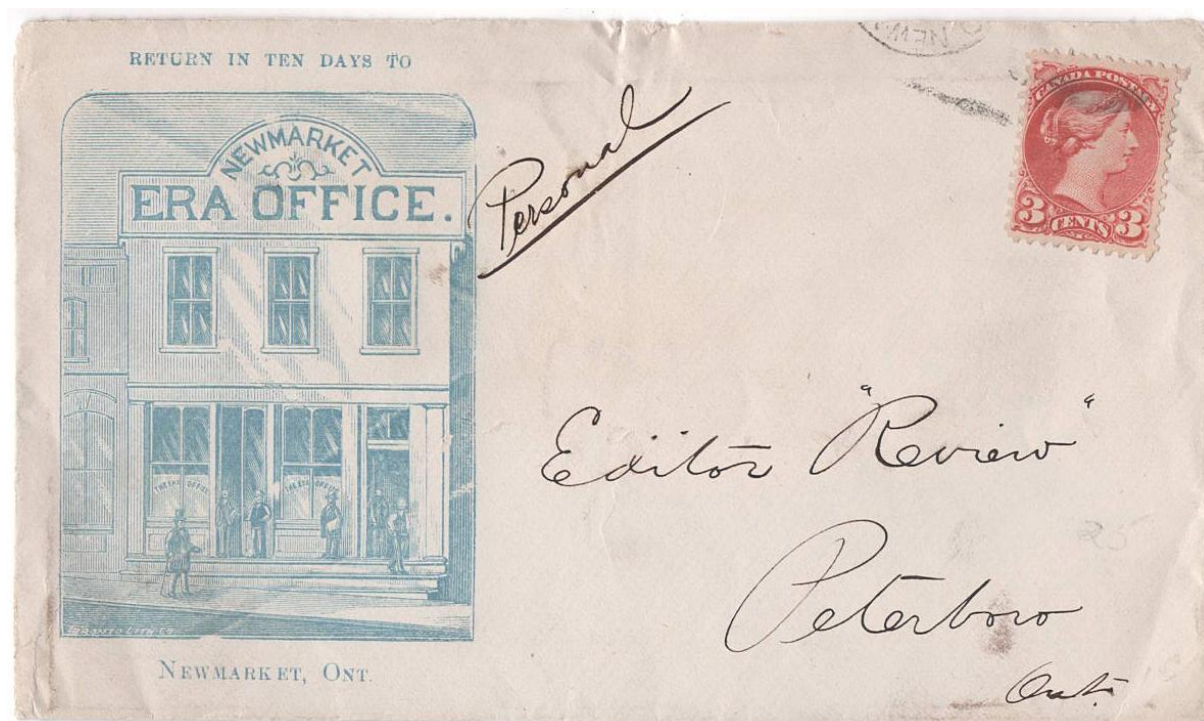 RETURN IN TEN DAYS TO
NEWMARKET
ERA OFFICE.
THE ERA OFFICE
THE ERA OFFICE
TORONTO LITH. CO.
NEWMARKET, ONT.
Personal
NEW
CANADA POSTAGE
3 CENTS 3
Editor "Review"
Peterboro
Ont.
25